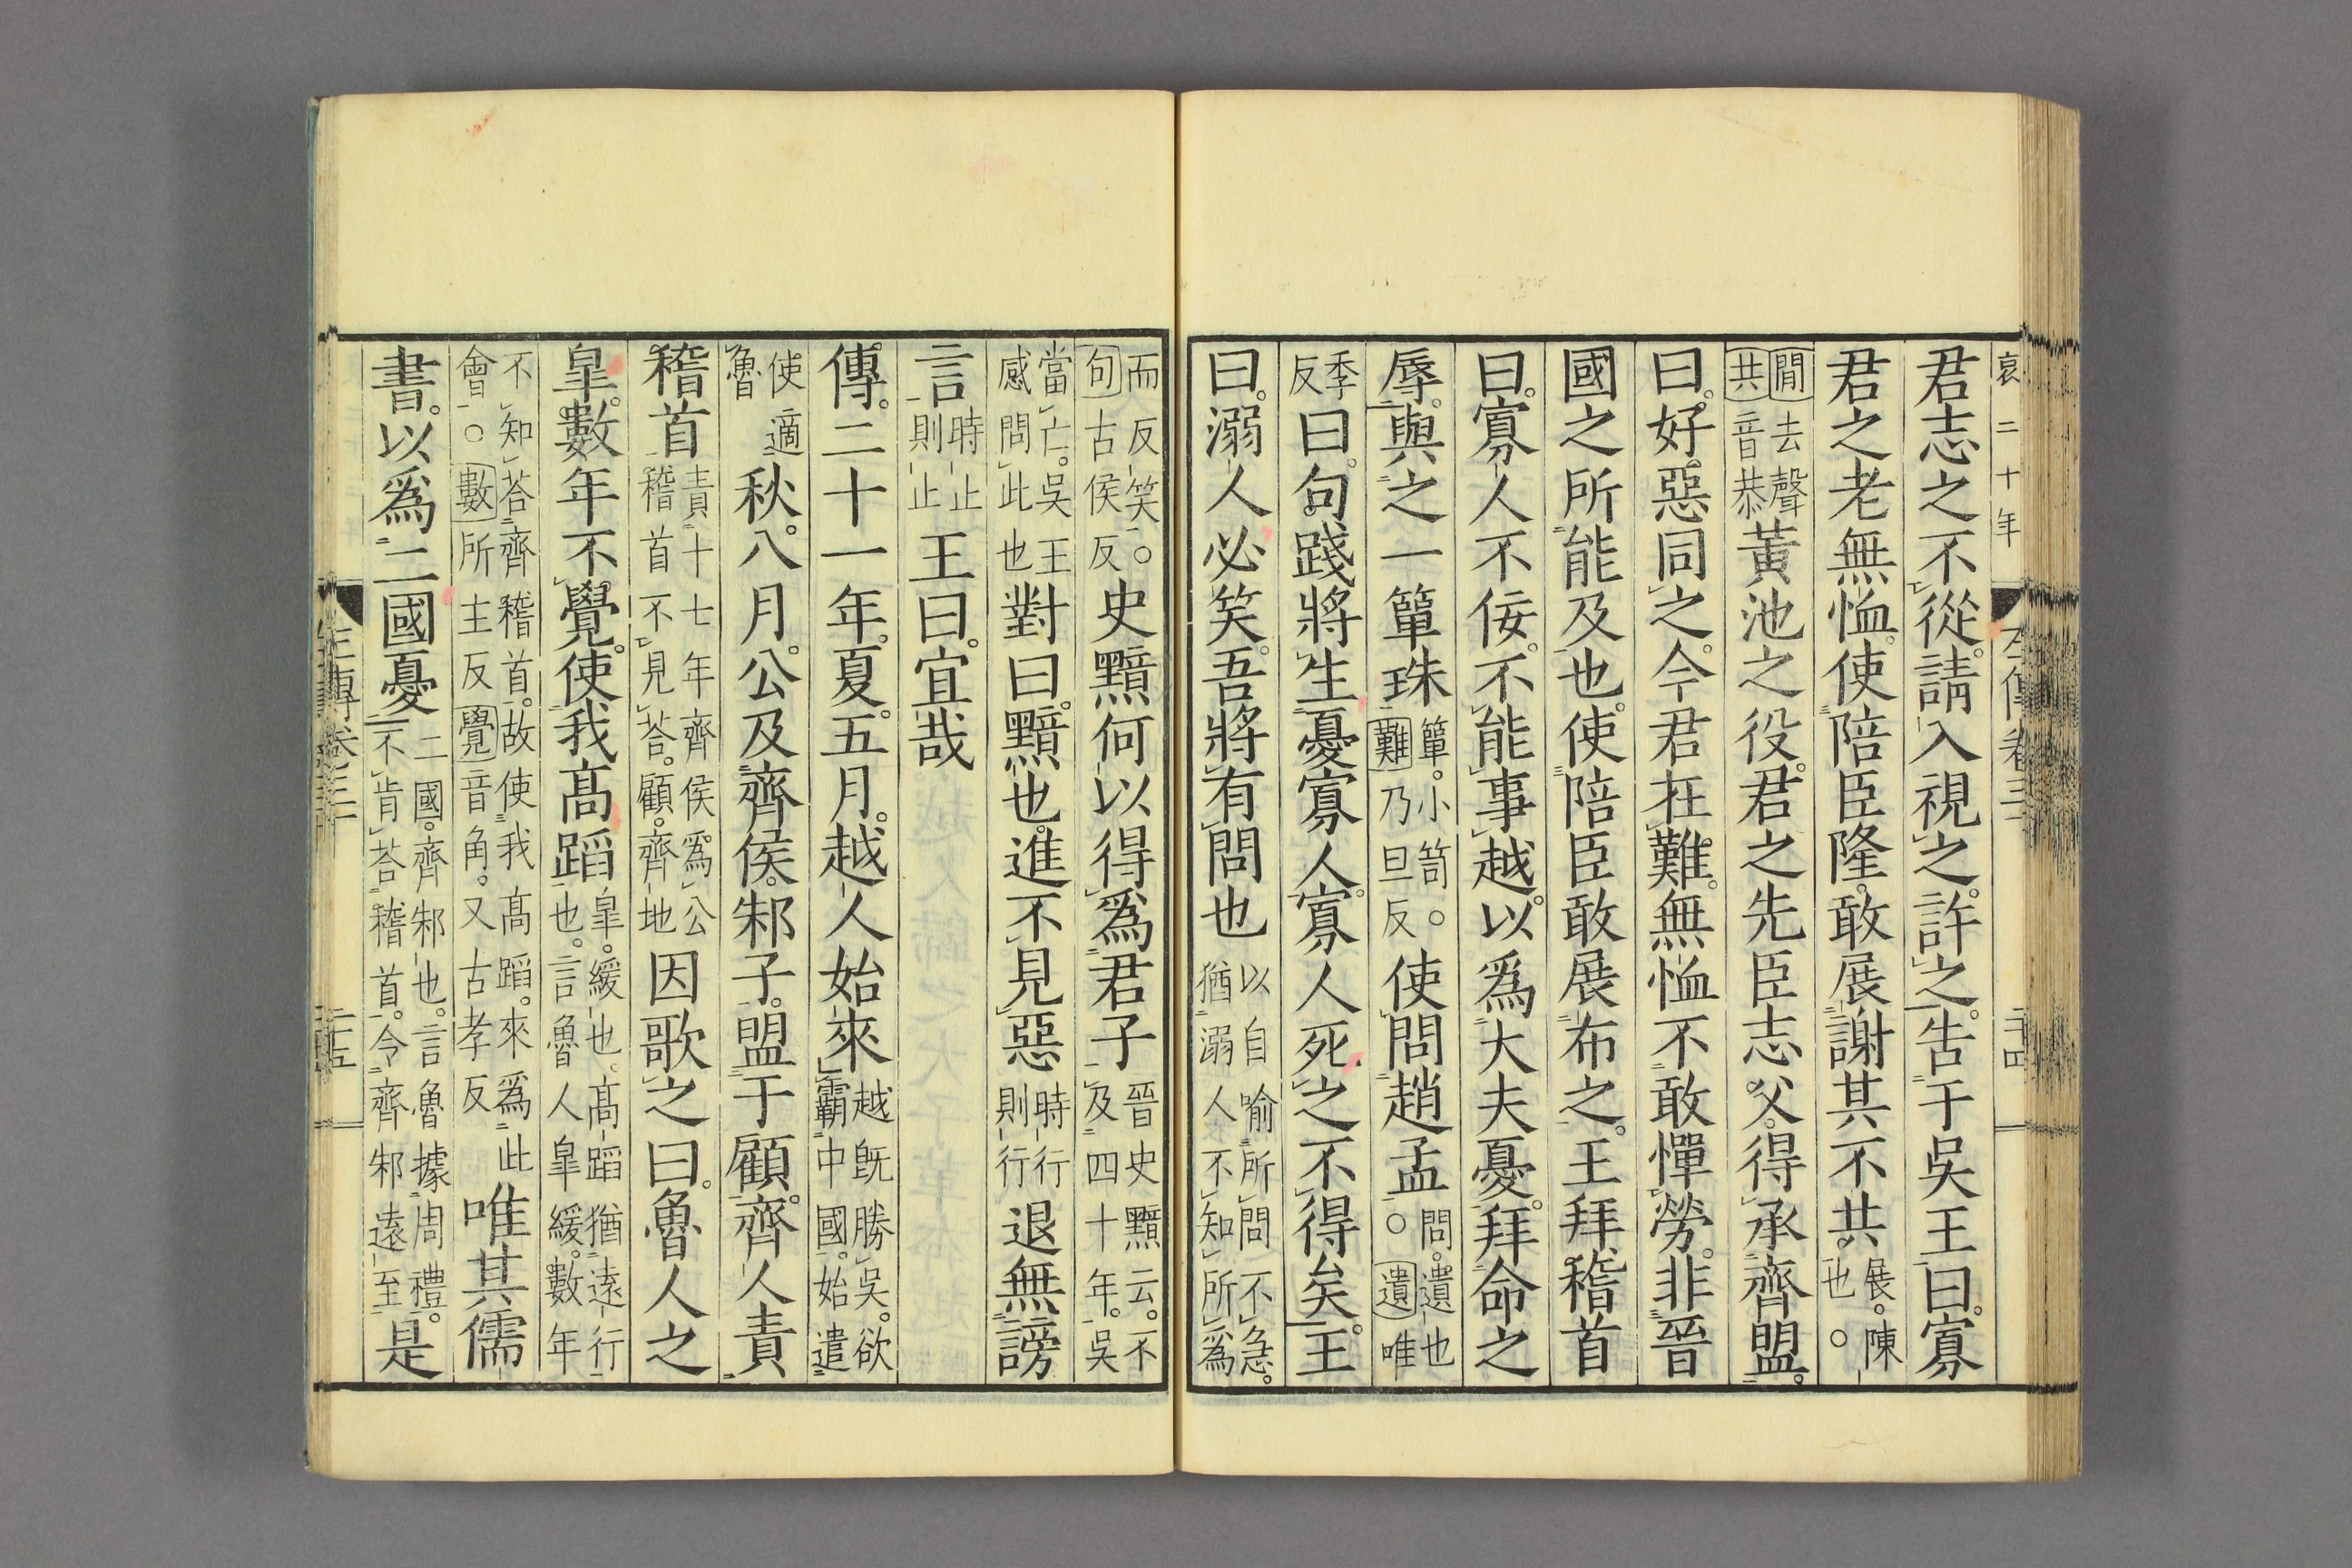 哀二十年
君志之不從請入視之許之告于吳王曰寡
君之老無恤使陪臣隆敢展謝其不共展陳也○
閒去聲共音恭黃池之役君之先臣志父得承齊盟
曰好惡同之今君在難無恤不敢憚勞非晉
國之所能及也使陪臣敢展布之王拜稽首
曰寡人不佞不能事越以爲大夫憂拜命之
辱與之一簞珠簞小笥○難乃旦反使問趙孟問遺也○遺唯
季反曰句踐將生憂寡人寡人死之不得矣王
曰溺人必笑吾將有問也以自喻所問不急猶溺人不知所爲
而反笑○句古侯反史黯何以得爲君子晉史黯云不及四十年吳
當亡吳王感問此也對曰黯也進不見惡時行則行退無謗
言時止則止王曰宜哉
傳二十一年夏五月越人始來越旣勝吳欲霸中國始遣
使適魯秋八月公及齊侯邾子盟于顧齊人責
稽首責十七年齊侯爲公稽首不見荅顧齊地因歌之曰魯人之
皐數年不覺使我髙蹈皐緩也髙蹈猶遠行也言魯人皐緩數年
不知荅齊稽首故使我髙蹈來爲此會○數所主反覺音角又古孝反唯其儒
書以爲二國憂二國齊邾也言魯據周禮不肯荅稽首令齊邾遠至是